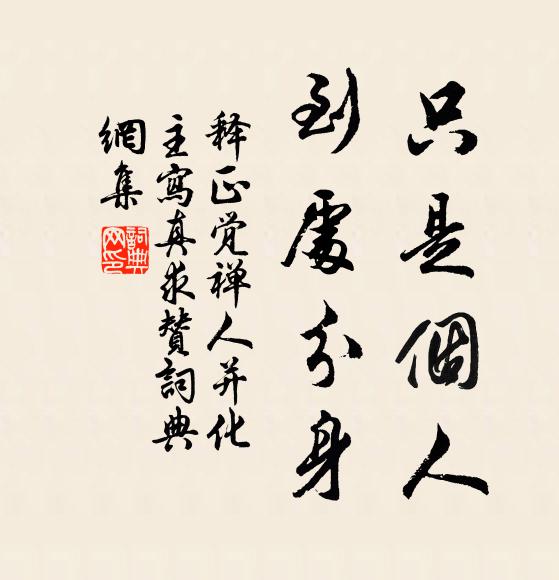 只是個人
到處分身
释正觉禅人并化
主寫真求賛詞典
網集
詞典
网印